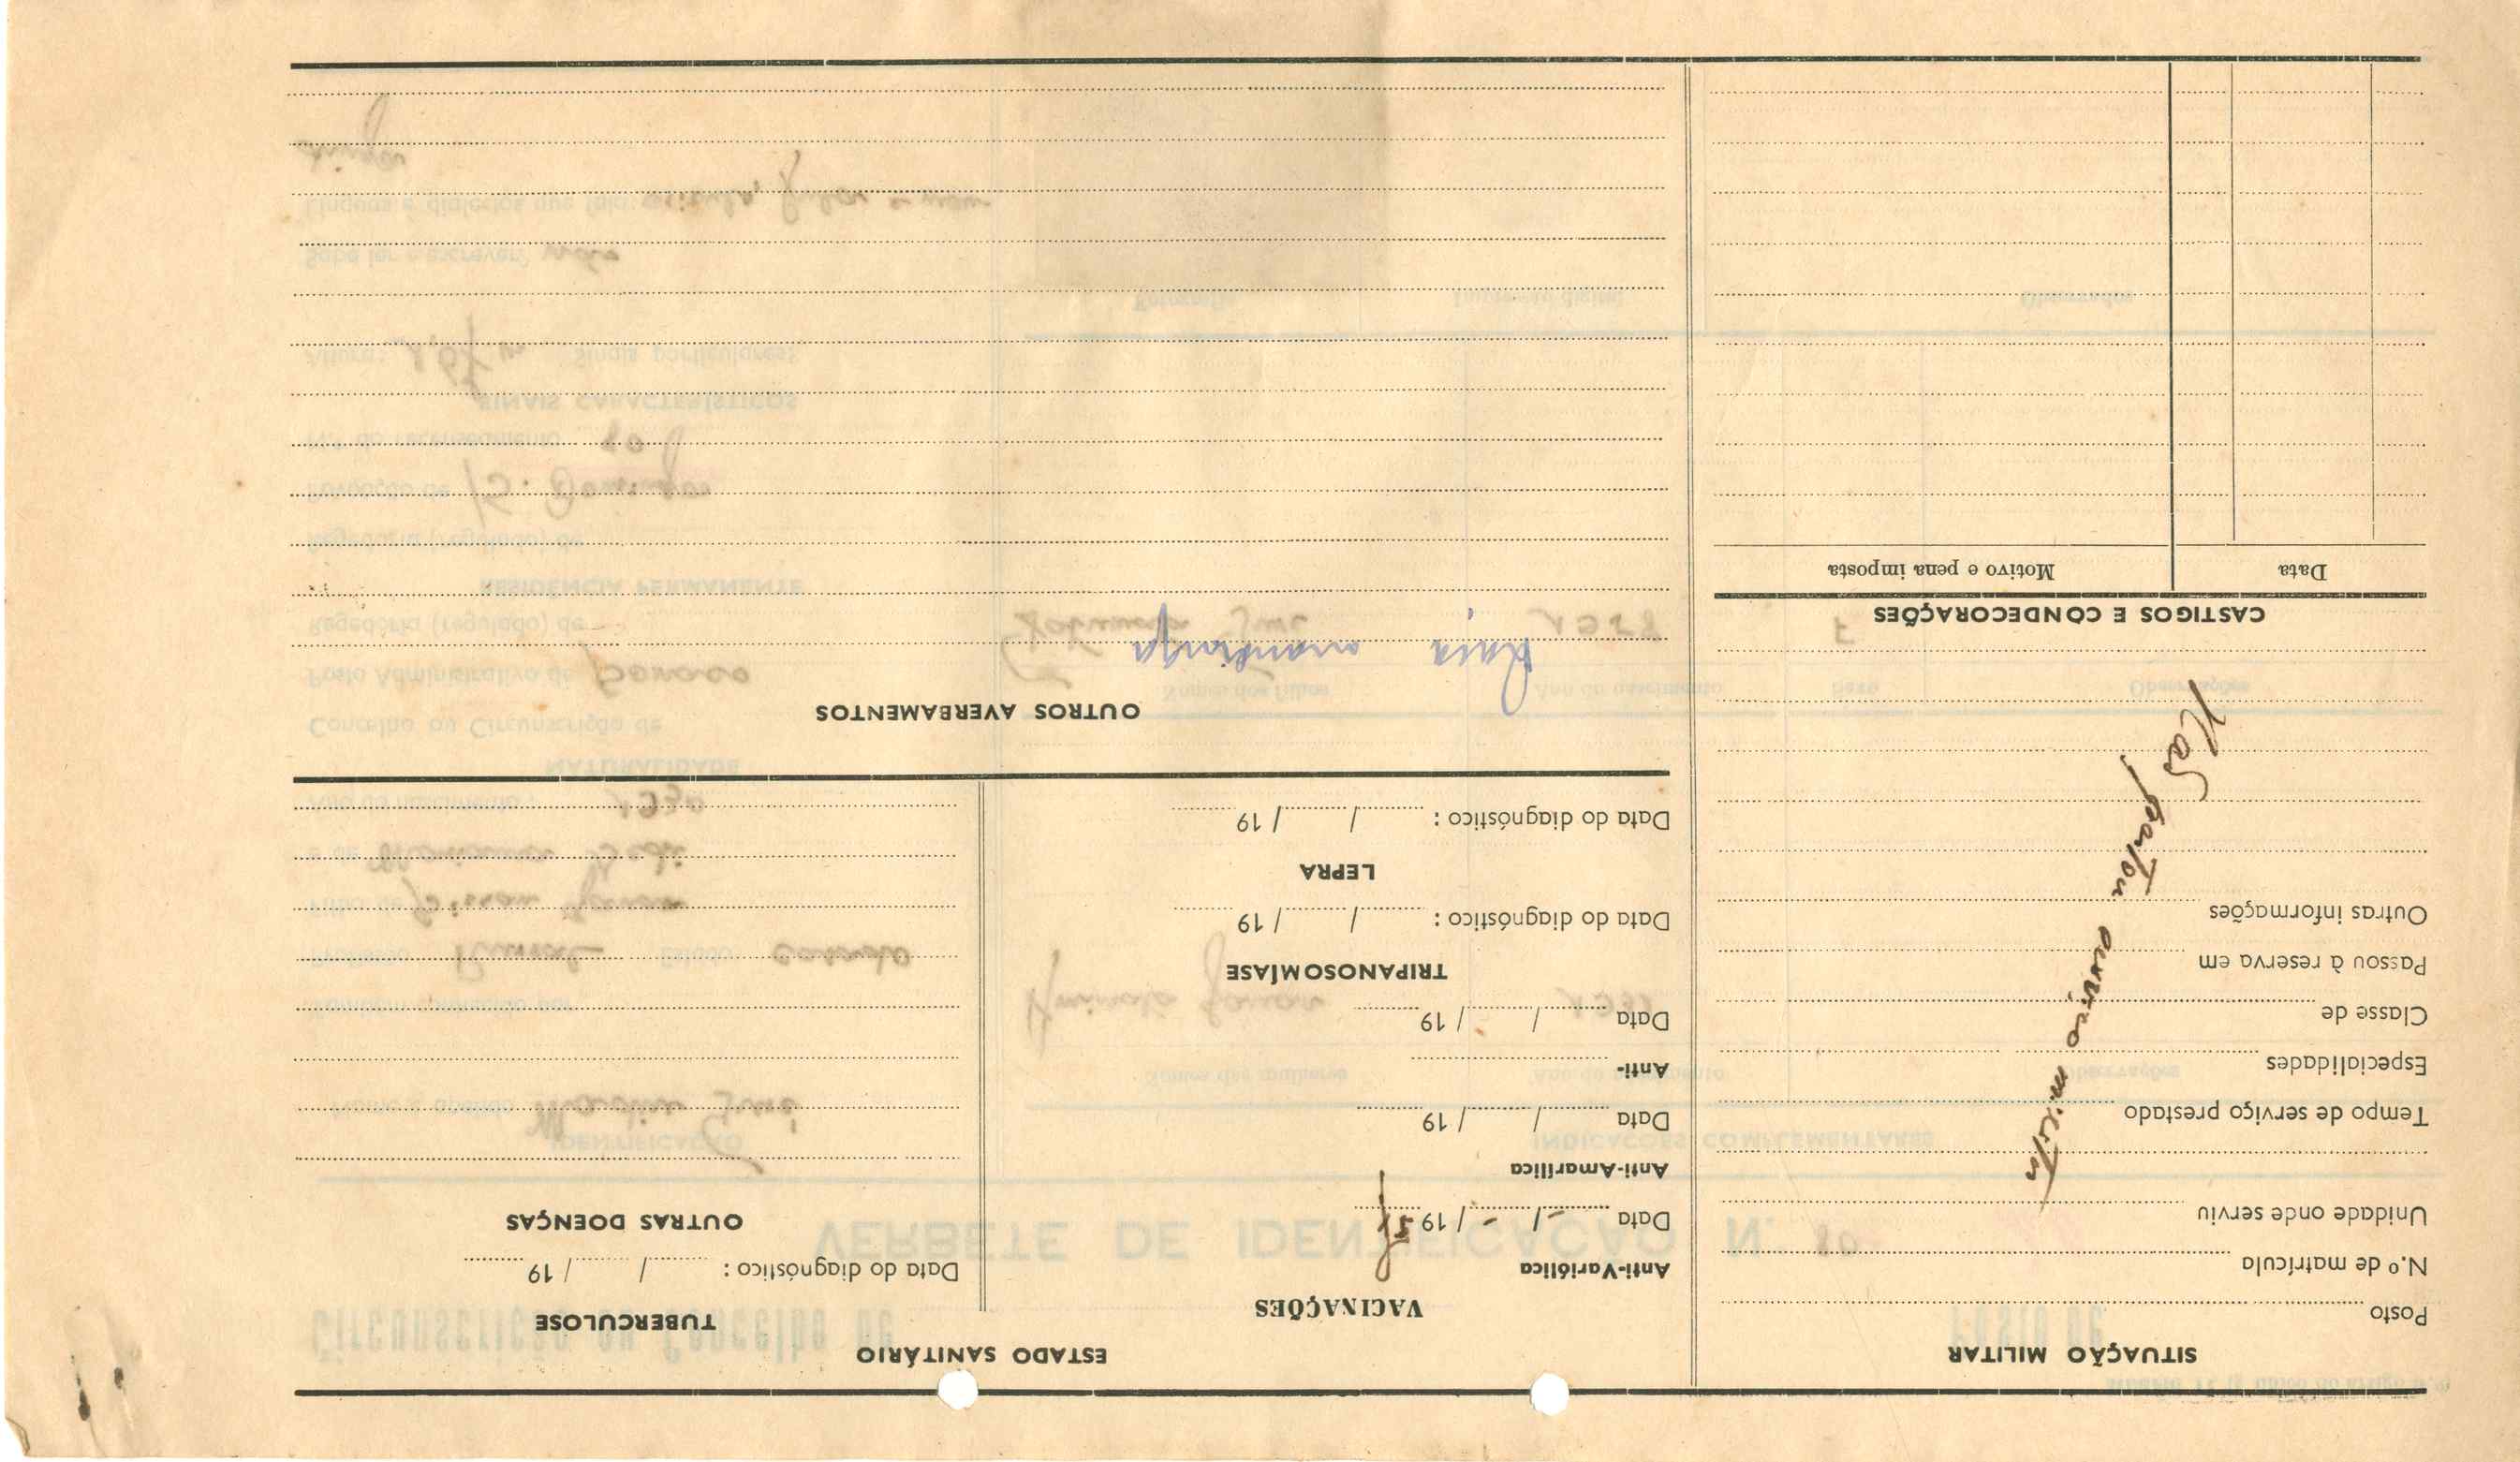 SITUAÇÃO MILITAR
Posto
N.º de matrícula
Unidade onde serviu
Tempo de serviço prestado
Especialidades
Classe de
Passou à reserva em
Outras informações
Não prestou serviço militar
CASTIGOS E CONDECORAÇÕES
Data
Motivo e pena imposta
ESTADO SANITÁRIO
VACINAÇÕES
Anti-Variólica
Data - / - / 19
Anti-Amarílica
Data / / 19
Anti-
Data / / 19
TRIPANOSOMÍASE
Data do diagnóstico : / / 19
LEPRA
Data do diagnóstico : / / 19
TUBERCULOSE
Data do diagnóstico : / / 19
OUTRAS DOENÇAS
OUTROS AVERBAMENTOS
Raça mandinga